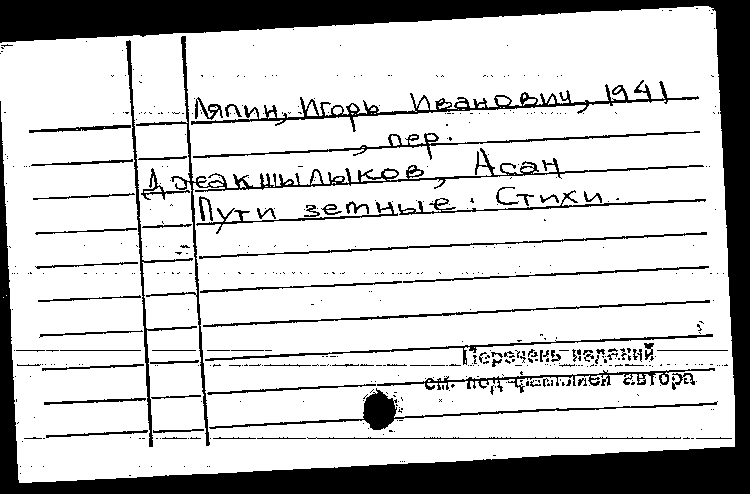 Ляпин, Игорь Иванович, 1941
, пер.
Джакшылыков, Асан
Пути земные: Стихи.
Перечень изданий
см. под фамилией автора